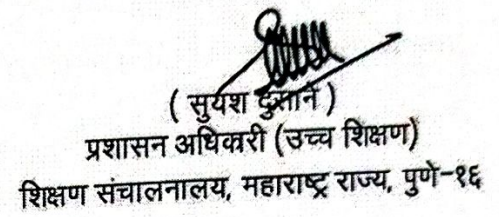 ( सुयश दुसाने )
प्रशासन अधिकारी (उच्च शिक्षण)
शिक्षण संचालनालय, महाराष्ट्र राज्य, पुणे-१६